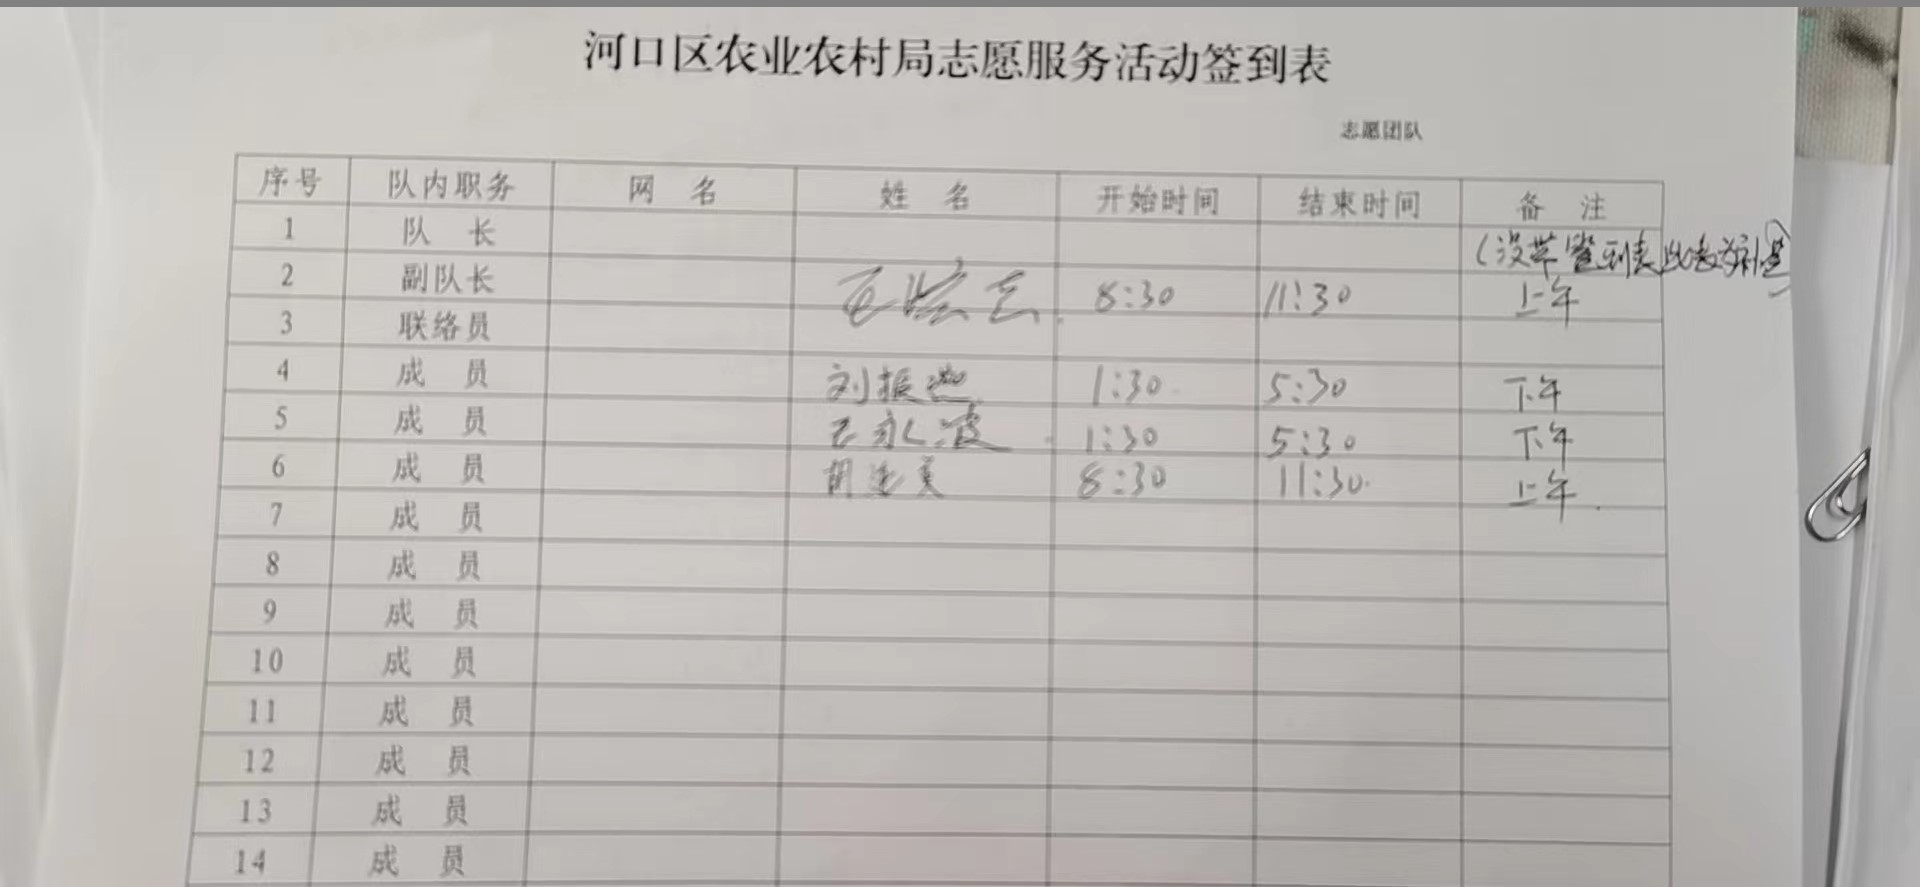 河口区农业农村局志愿服务活动签到表
志愿团队
序号 队内职务 网 名 姓 名 开始时间 结束时间 备 注
1 队 长 (没带签到表此表
2 副队长 8:30 11:30 上午
3 联络员
4 成 员 刘振 1:30 5:30 下午
5 成 员 王永波 1:30 5:30 下午
6 成 员 胡 8:30 11:30 上午
7 成 员
8 成 员
9 成 员
10 成 员
11 成 员
12 成 员
13 成 员
14 成 员